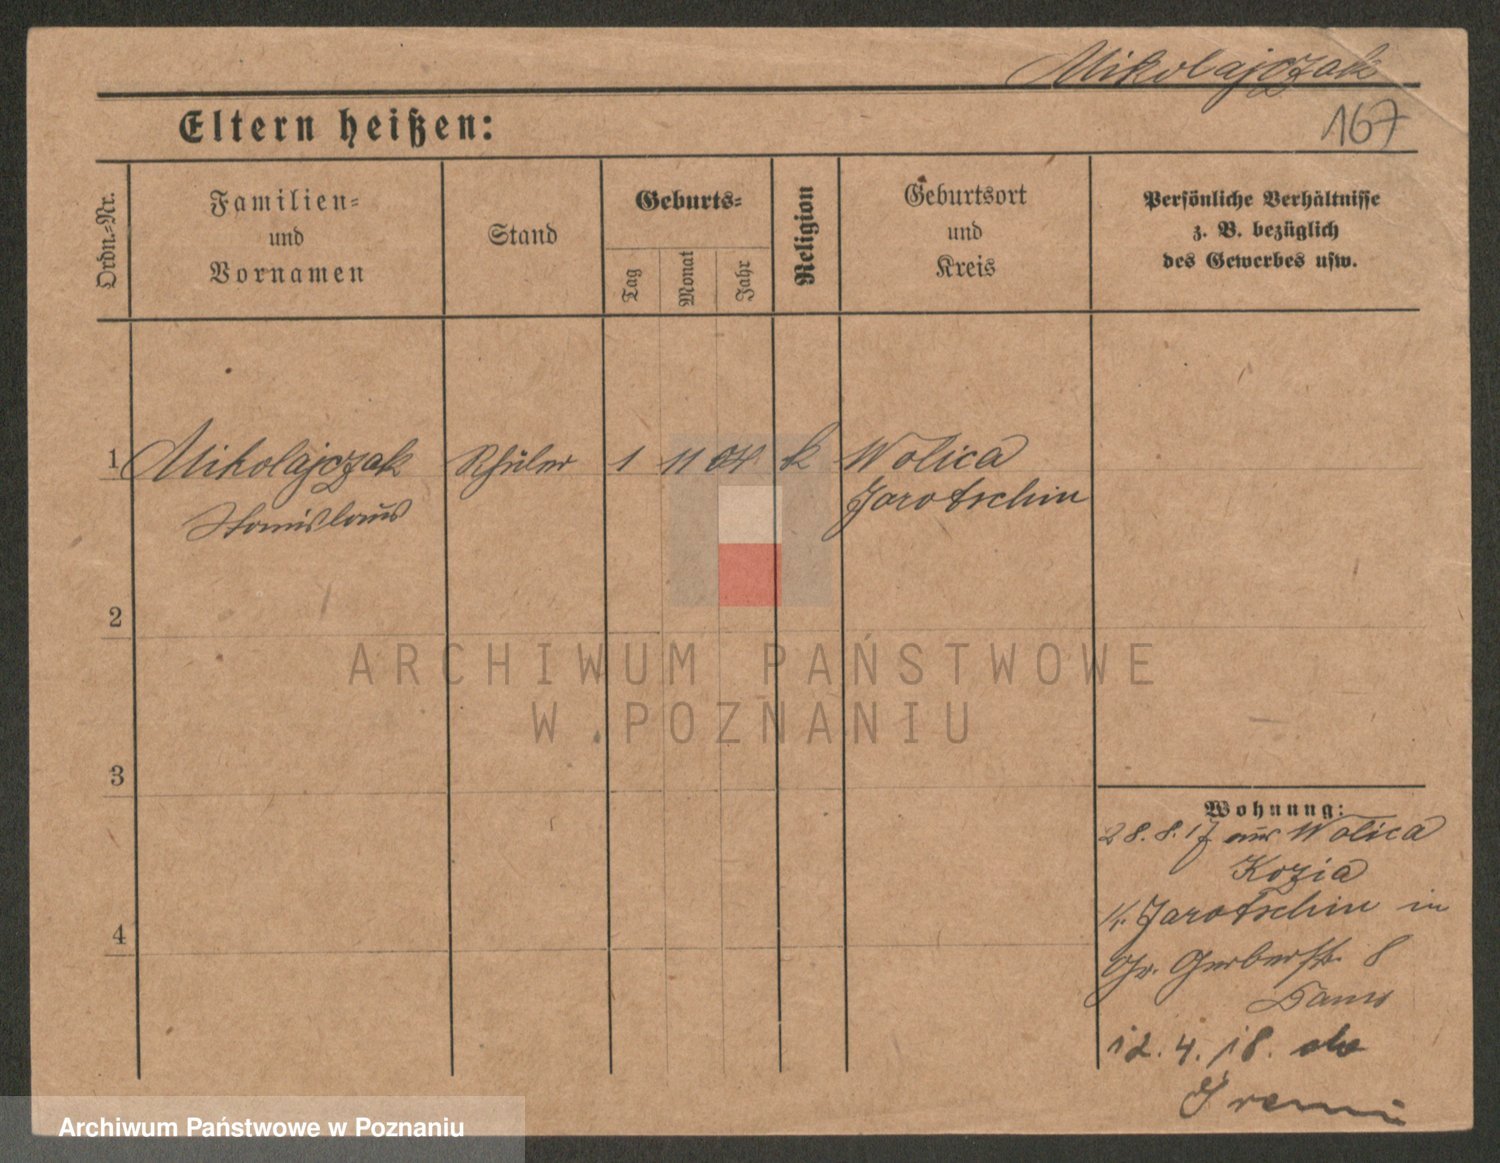 Mikolajczak
167
Eltern heißen:
Ordn.-Nr.
Familien=
und
Vornamen
Stand
Geburts=
Tag
Monat
Jahr
Religion
Geburtsort
und
Kreis
Persönliche Verhältnisse
z. B. bezüglich
des Gewerbes usw.
1 Mikolajczak Schüler 1 11 04 k Wolica
Stanislaus Jarotschin
2
3
4
Wohnung:
28.8.17 aus Wolica
Kozia
Kr. Jarotschin in
Gr. Gerberstr. 8
12.4.18.
ARCHIWUM PAŃSTWOWE
W POZNANIU
Archiwum Państwowe w Poznaniu